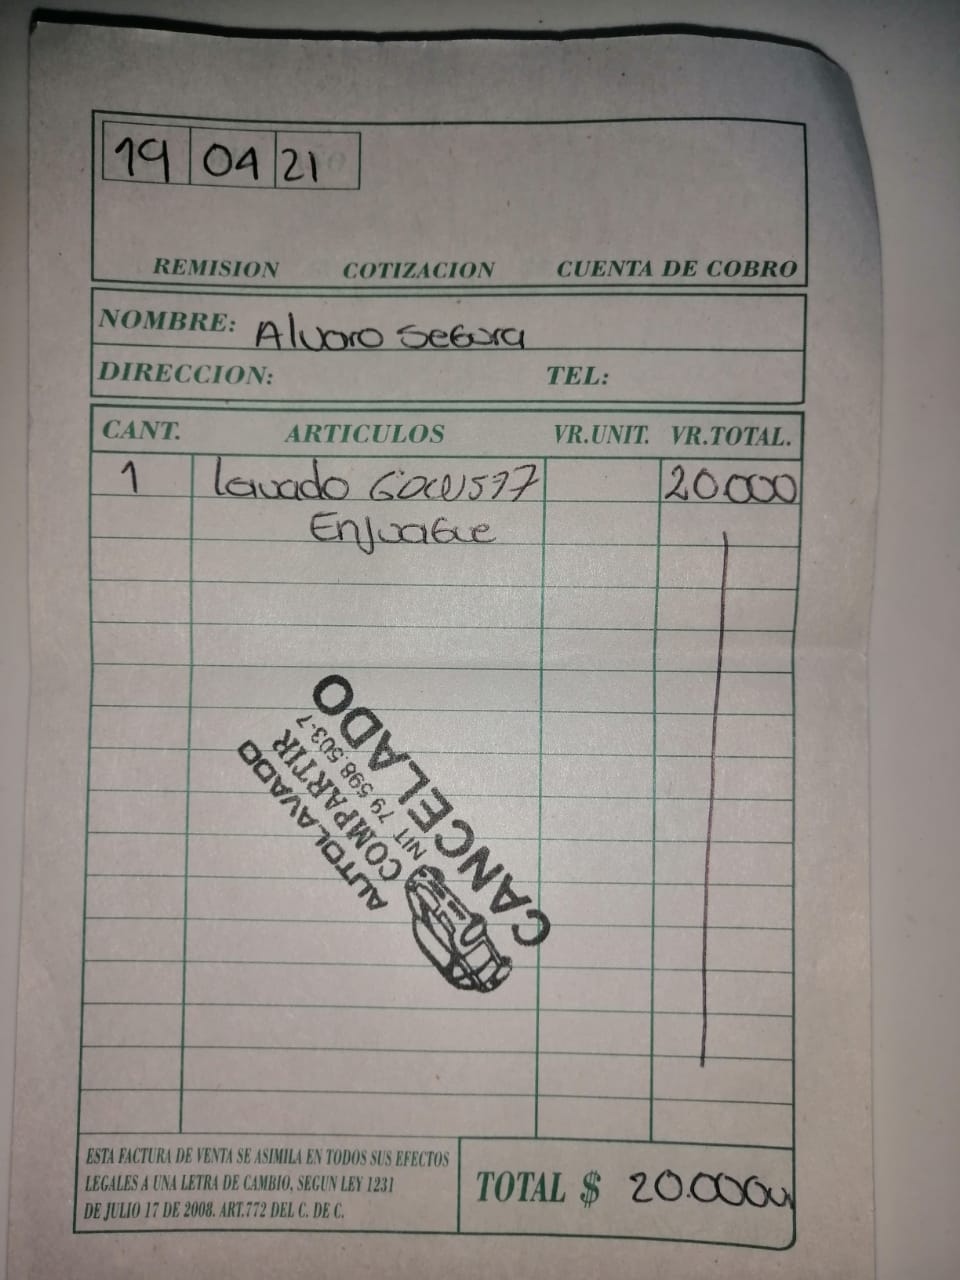 19 04 21
REMISION COTIZACION CUENTA DE COBRO
NOMBRE: Alvaro Segura
DIRECCION: TEL:
CANT. ARTICULOS VR.UNIT. VR.TOTAL.
1 lavado 20.000
Enjuague
AUTOLAVADO
COMPARTIR
NIT 79 598.503-7
CANCELADO
ESTA FACTURA DE VENTA SE ASIMILA EN TODOS SUS EFECTOS
LEGALES A UNA LETRA DE CAMBIO, SEGUN LEY 1231
DE JULIO 17 DE 2008. ART.772 DEL C. DE C.
TOTAL $ 20.000